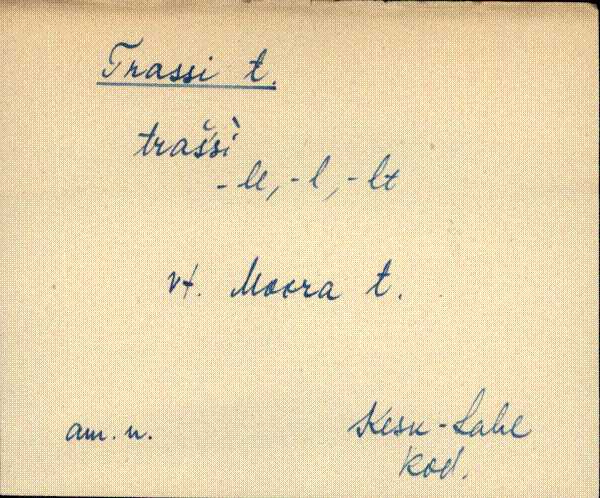 Trassi t.
trašsì
-le, -l, -lt
vt. Moora t.
am. n.
Kesk-Lahe
Kod.